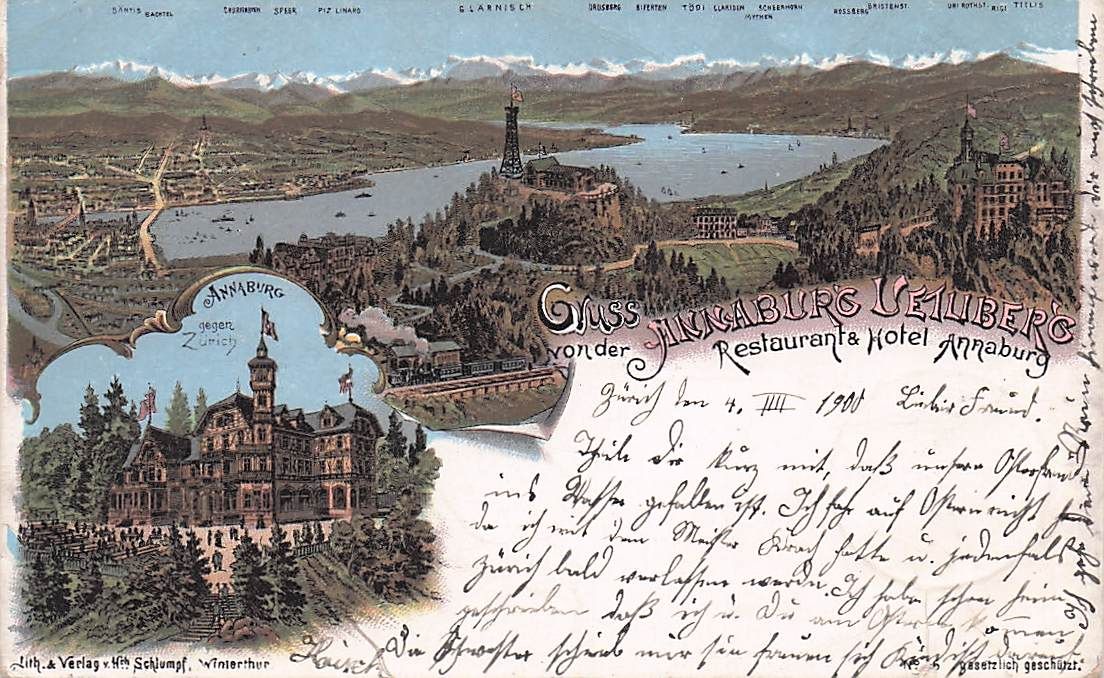 SÄNTIS BACHTEL CHURFIRSTEN SPEER PIZ LINARD GLÄRNISCH DRUSBERG BIFERTEN TÖDI CLARIDEN SCHEERHORN MYTHEN ROSSBERG BRISTENST. URI ROTHST. RIGI TITLIS
ANNABURG
gegen
Zürich
Gruss
von der
ANNABURG UETLIBERG
Restaurant & Hotel Annaburg
Zürich den 4. IIII 1900 Lieber Freund.
Theile Dir kurz mit, daß unsere
ins Wasser gefallen ist. Ich auf Ostern nicht
da ich mit dem Meister Krach hatte u. jedenfalls
Zürich bald verlassen werde. Ich habe schon heim
geschrieben daß ich u. Du am Ostern kommen
Die Schwester schrieb mir sie freuen sich darauf
Lith. & Verlag v. Hch Schlumpf, Winterthur
gesetzlich geschützt.